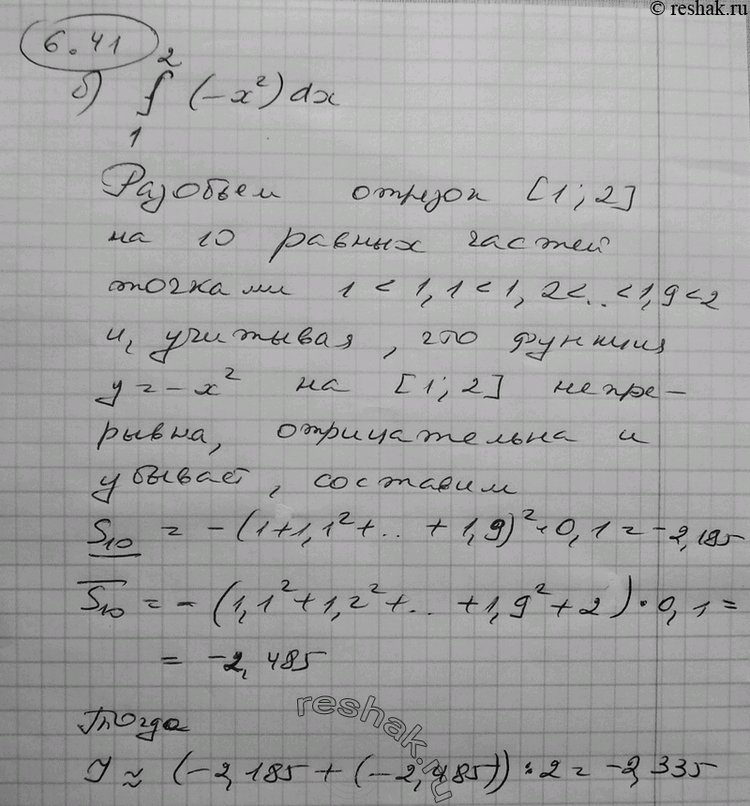 © reshak.ru
6.41
б) ∫₁² (-x²) dx
Разобьем отрезок [1; 2]
на 10 равных частей
точками 1 < 1,1 < 1,2 <..< 1,9 < 2
и, учитывая, что функция
y = -x² на [1; 2] непре-
рывна, отрицательна и
убывает, составим
S₁₀ = -(1+1,1²+..+1,9)²·0,1 = -2,185
S₁₀ = -(1,1²+1,2²+..+1,9²+2)·0,1 =
= -2,485
Тогда
J ≈ (-2,185 + (-2,485)) : 2 = -2,335
reshak.ru